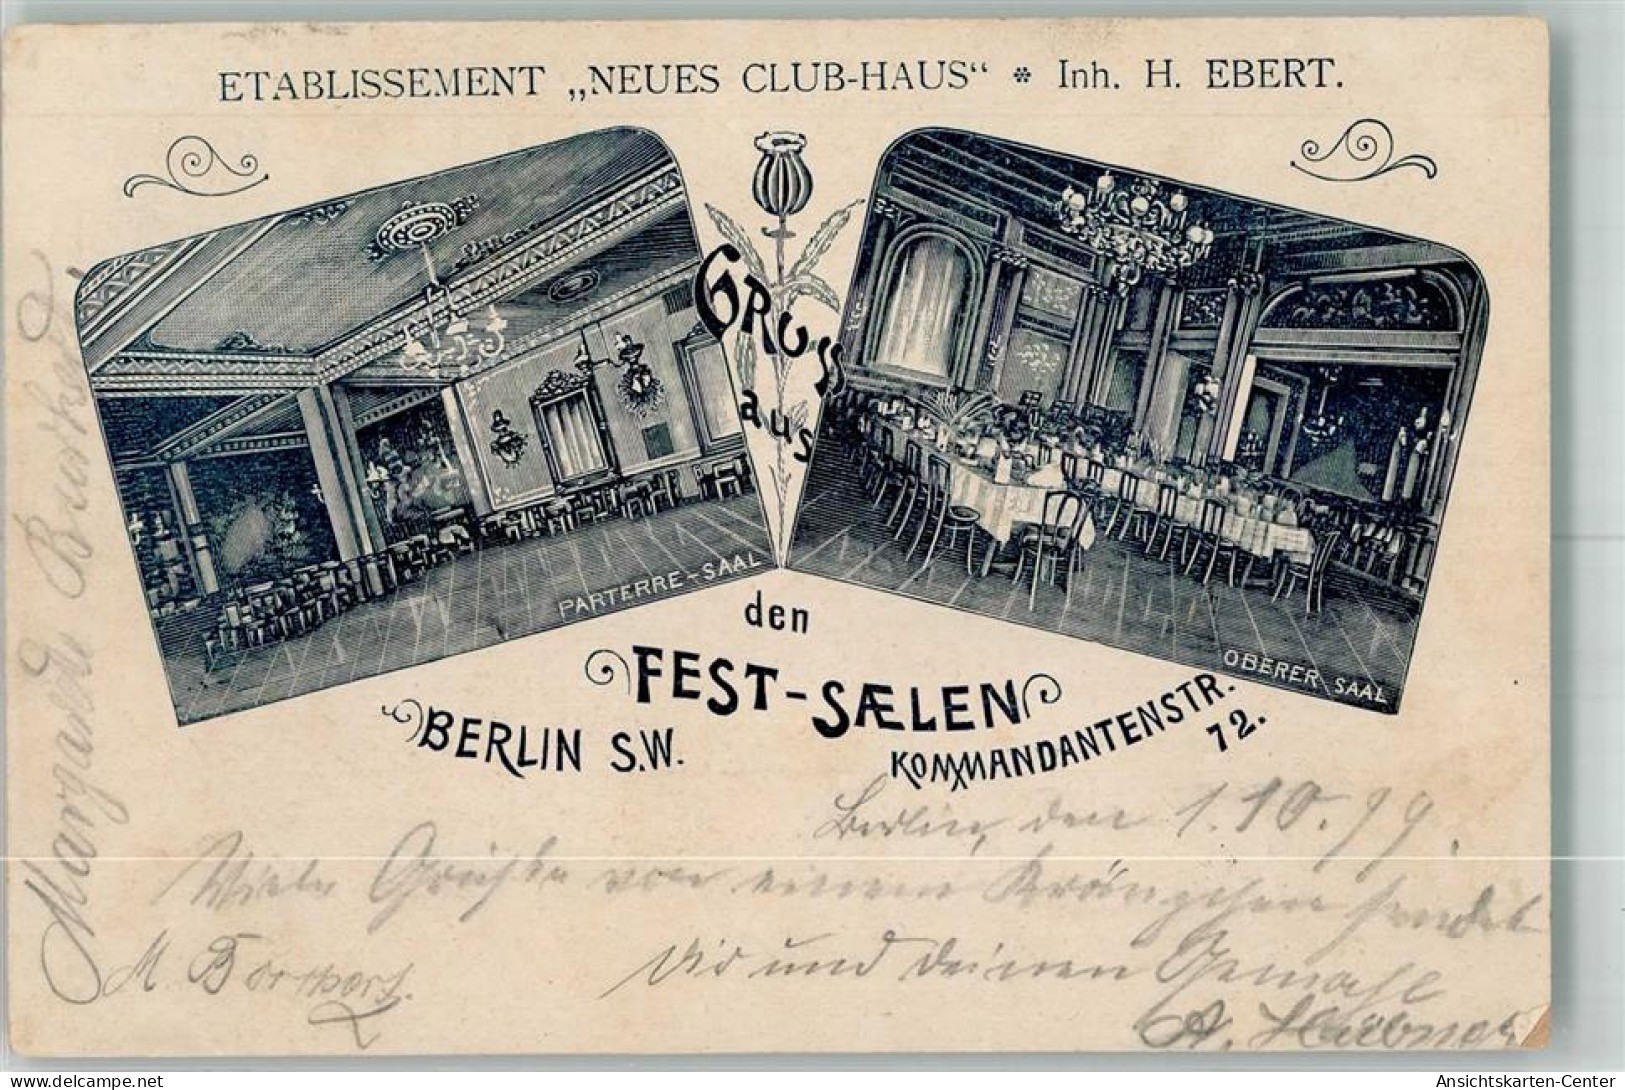 ETABLISSEMENT „NEUES CLUB-HAUS“ * Inh. H. EBERT.
GRUSS
aus
PARTERRE-SAAL
OBERER SAAL
den
FEST-SÆLEN
BERLIN S.W.
KOMMANDANTENSTR.
72.
Berlin, den 1.10.99.
Viele Grüße von einem Kränzchen sendet
Dir und deinem Gemahl
A.
M.
delcampe.net
Ansichtskarten-Center